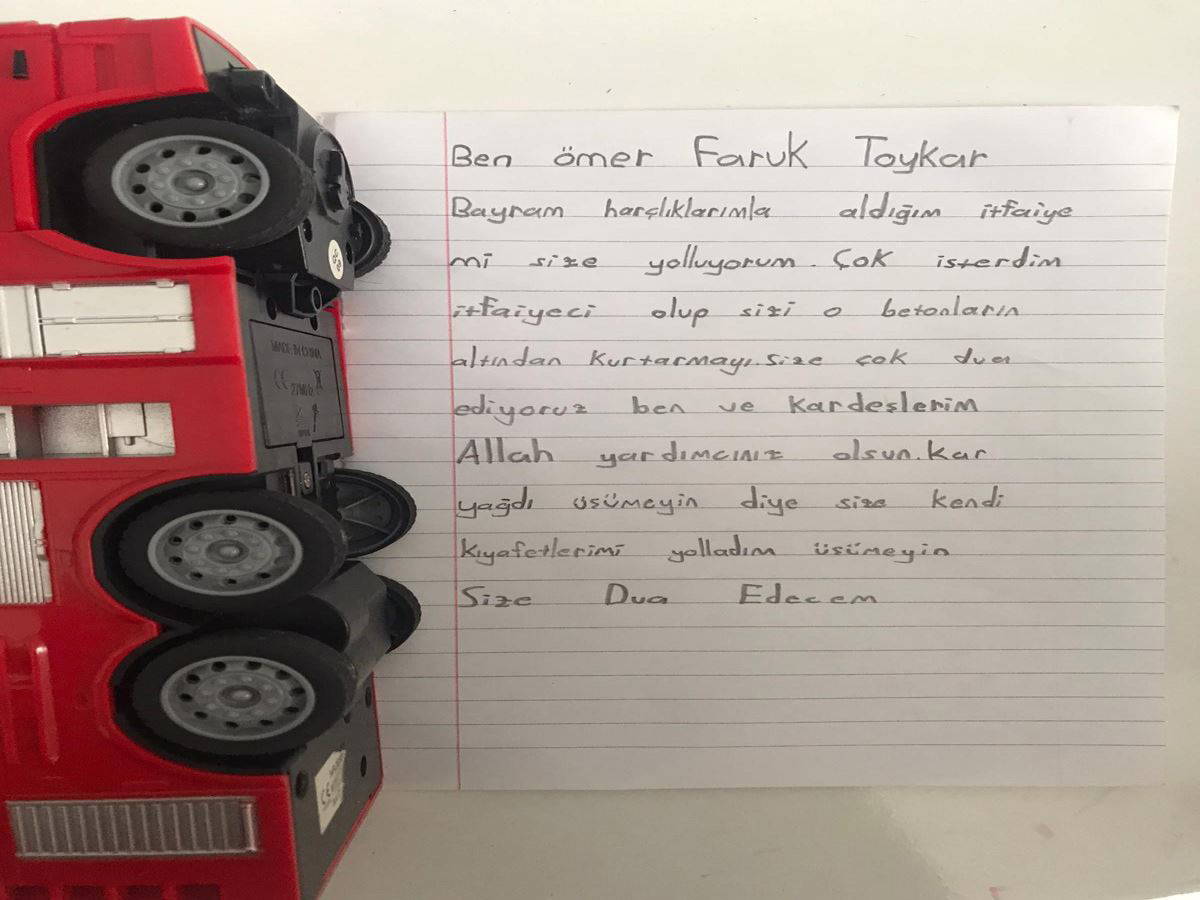 Ben ömer Faruk Toykar
Bayram harçlıklarımla aldığım itfaiye
mi size yolluyorum. Çok isterdim
itfaiyeci olup sizi o betonların
altından kurtarmayı.size çok dua
ediyoruz ben ve kardeşlerim
Allah yardımcınız olsun.kar
yağdı üsümeyin diye size kendi
kıyafetlerimi yolladım üsümeyin
Size Dua Edecem
MADE IN CHINA
CE